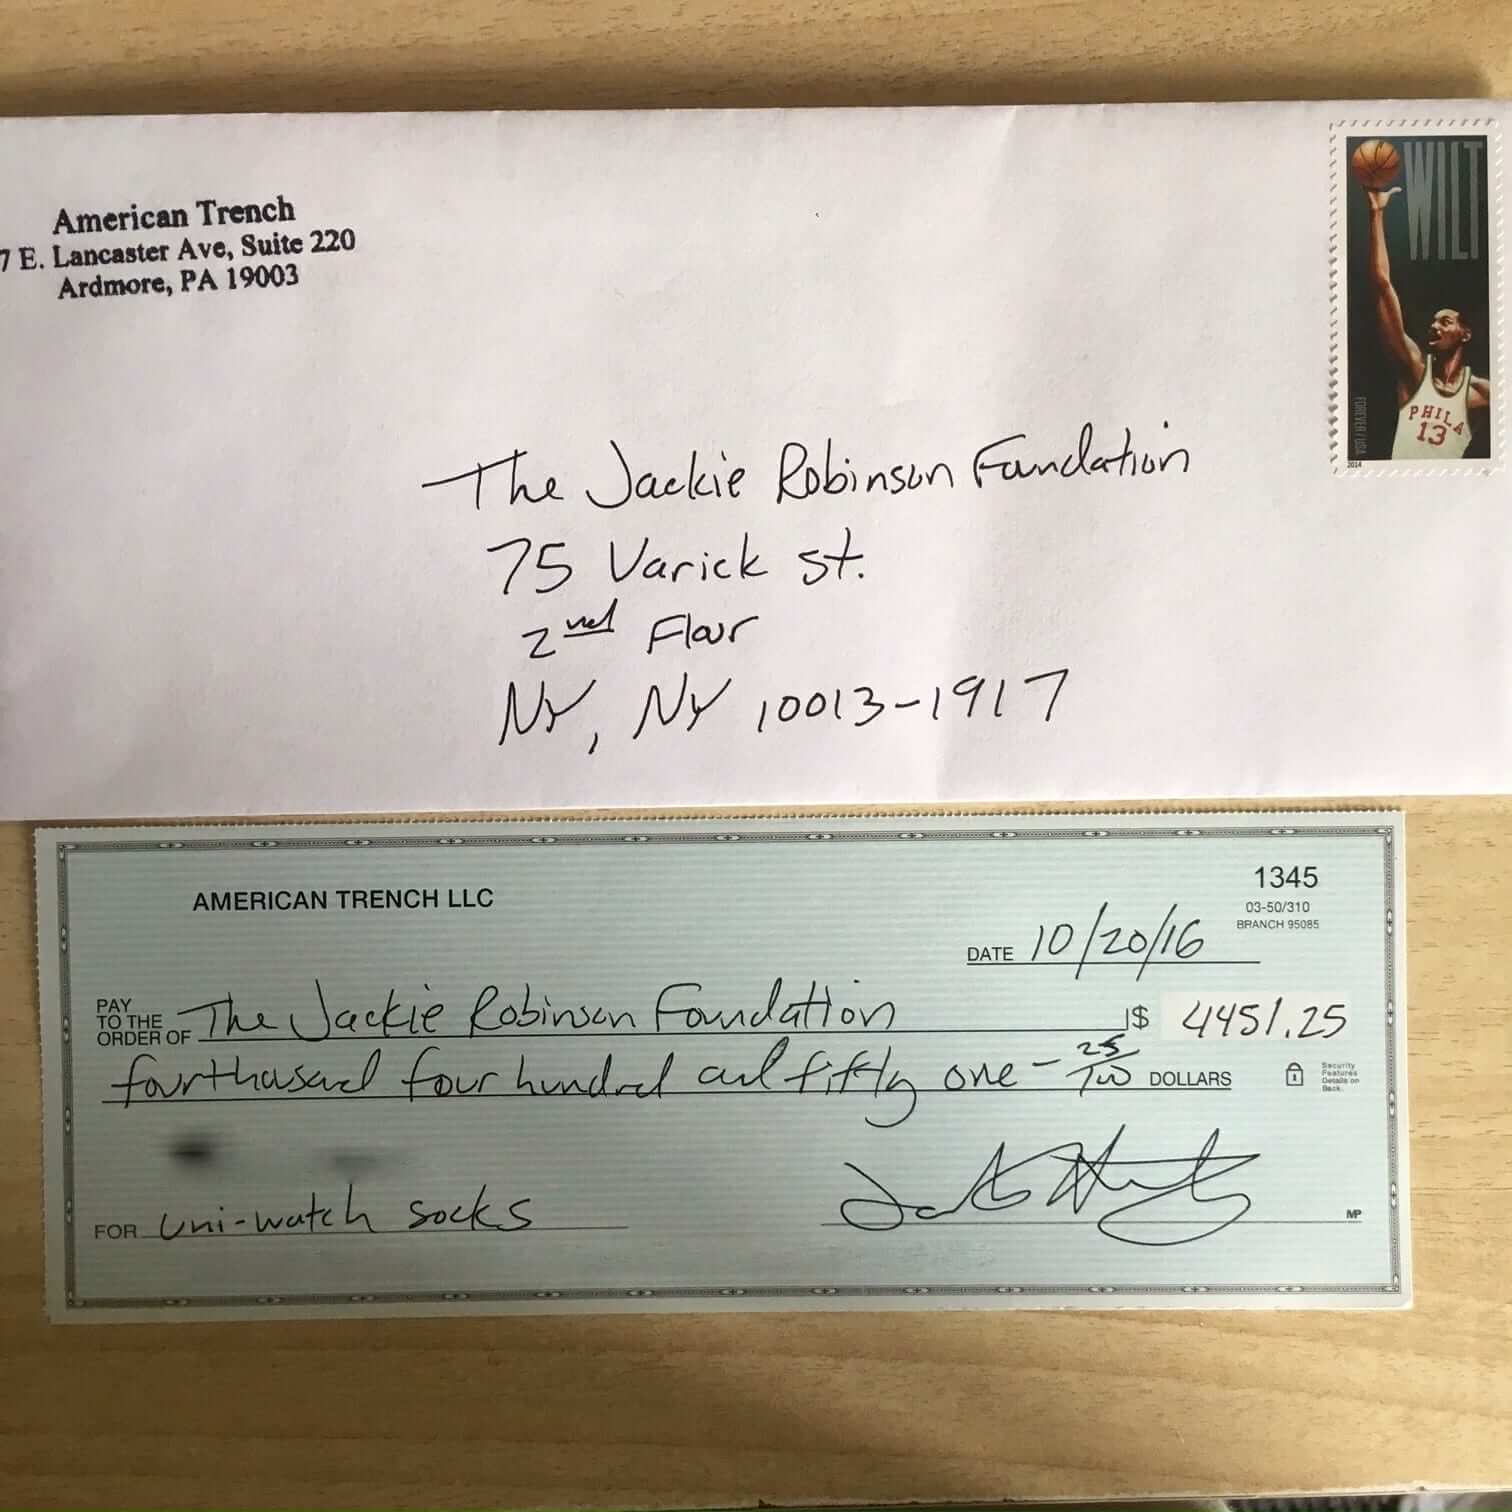 American Trench
7 E. Lancaster Ave, Suite 220
Ardmore, PA 19003
WILT
PHILA
13
FOREVER/USA
2014
The Jackie Robinson Foundation
75 Varick St.
2nd Floor
NY, NY 10013-1917
AMERICAN TRENCH LLC
1345
03-50/310
BRANCH 95085
DATE 10/20/16
PAY
TO THE
ORDER OF The Jackie Robinson Foundation $ 4451.25
four thousand four hundred and fifty one - 25/100 DOLLARS
Security
Features
Details on
Back.
FOR uni-watch socks
MP